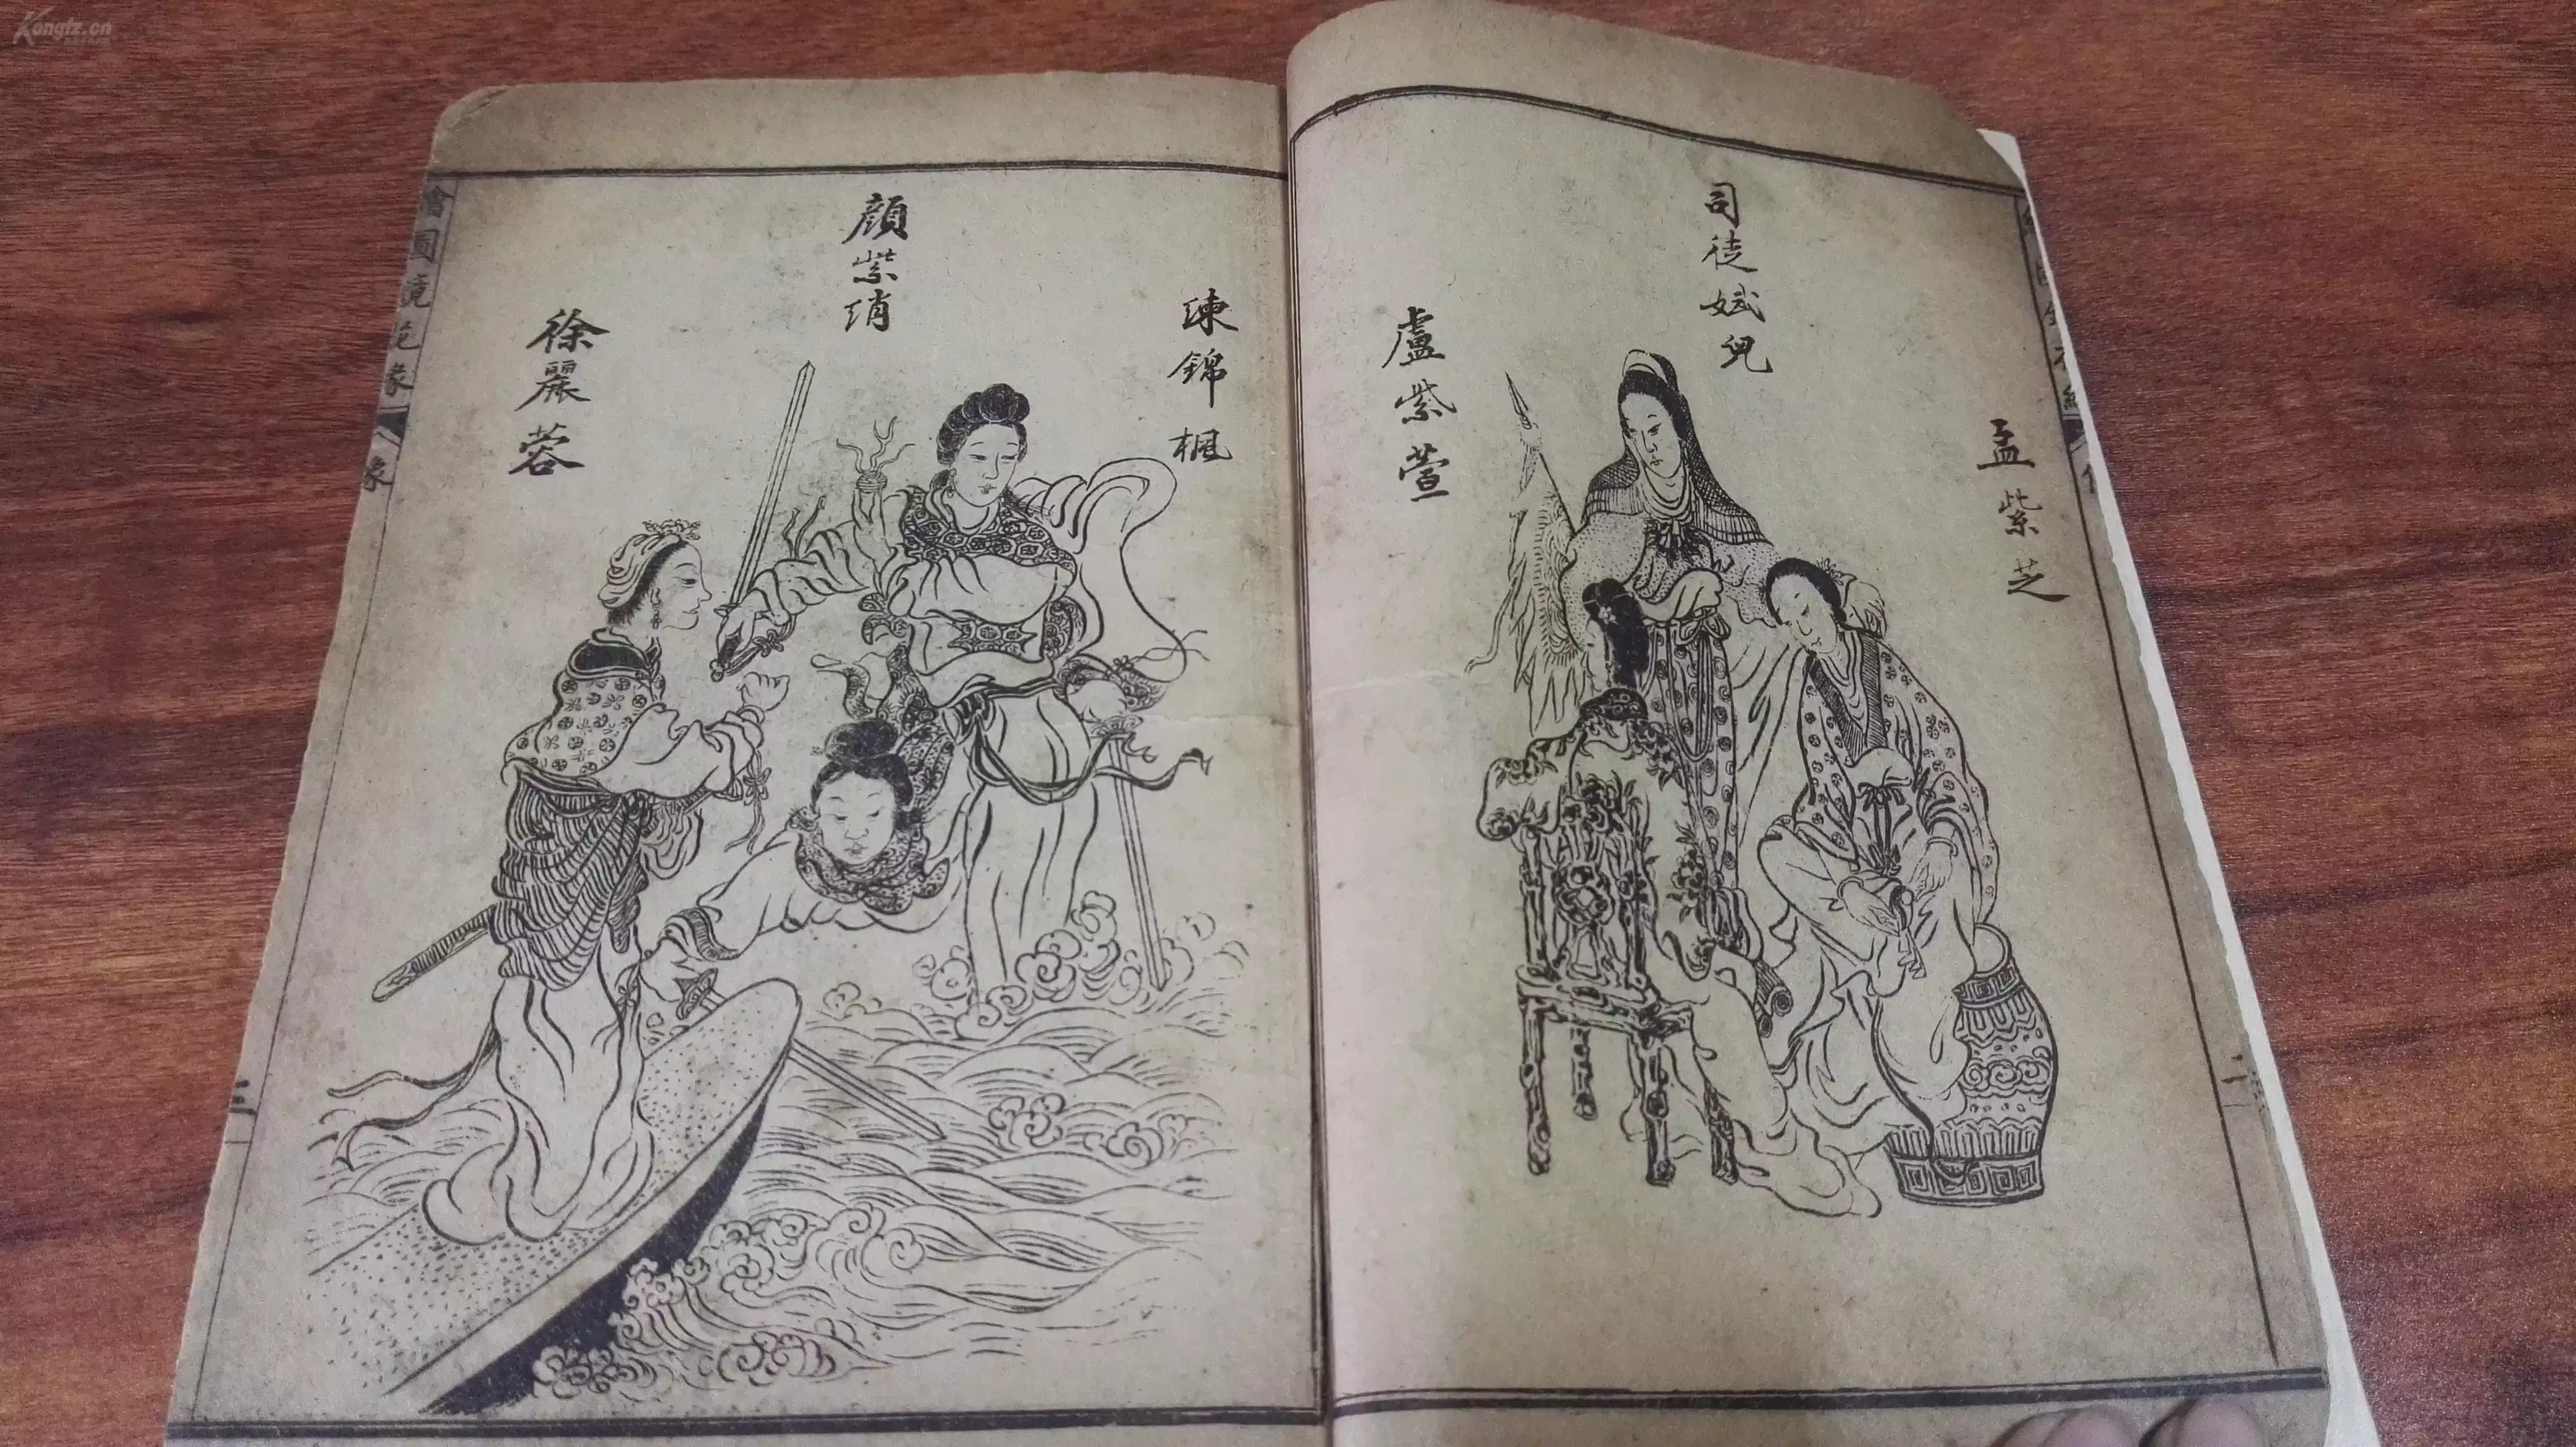 孟紫芝
司徒斌兒
盧紫萱
二
陳錦楓
顏紫绡
徐麗蓉
繪圖鏡花緣
像
三
Kongfz.cn